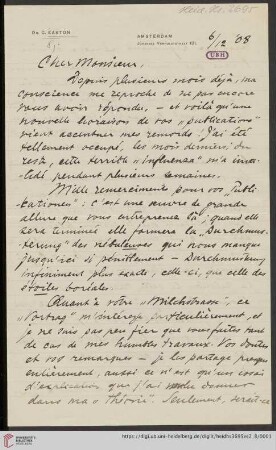 Heid. Hs. 3695
Dr. C. EASTON
AMSTERDAM
6/12 '08
UBH
Cher Monsieur,
Depuis plusieurs mois déjà, ma
conscience me reproche de ne pas encore
vous avoir répondu, – et voilà qu'une
nouvelle livraison de vos „publications"
vient accentuer mes remords. J'ai été
tellement occupé, les mois derniers; du
reste, cette terrible „influenza" m'a
pendant plusieurs semaines.
Mille remerciments pour vos „Publi-
kationen": c'est une œuvre de grande
allure que vous entreprenez là; quand elle
sera terminée elle formera la „Durchmus-
terung" des nébuleuses qui nous manque
jusqu'ici si péniblement – Durchmusterung
infiniment plus exacte, celle-ci, que celle des
étoiles boréales.
Quant à votre „Milchstrasse", ce
„Vortrag" m'intéresse particulièrement, et
je ne suis pas peu fier que vous faites tant
de cas de mes humbles travaux. Vos doutes
et vos remarques – je les partage presque
entièrement, aussi ce n'est qu'un essai
d'explication que j'ai voulu donner
dans ma „Théorie". Seulement,
https://digi.ub.uni-heidelberg.de/diglit/heidhs3695ei2_8/0001
UNIVERSITÄTS-
BIBLIOTHEK
HEIDELBERG